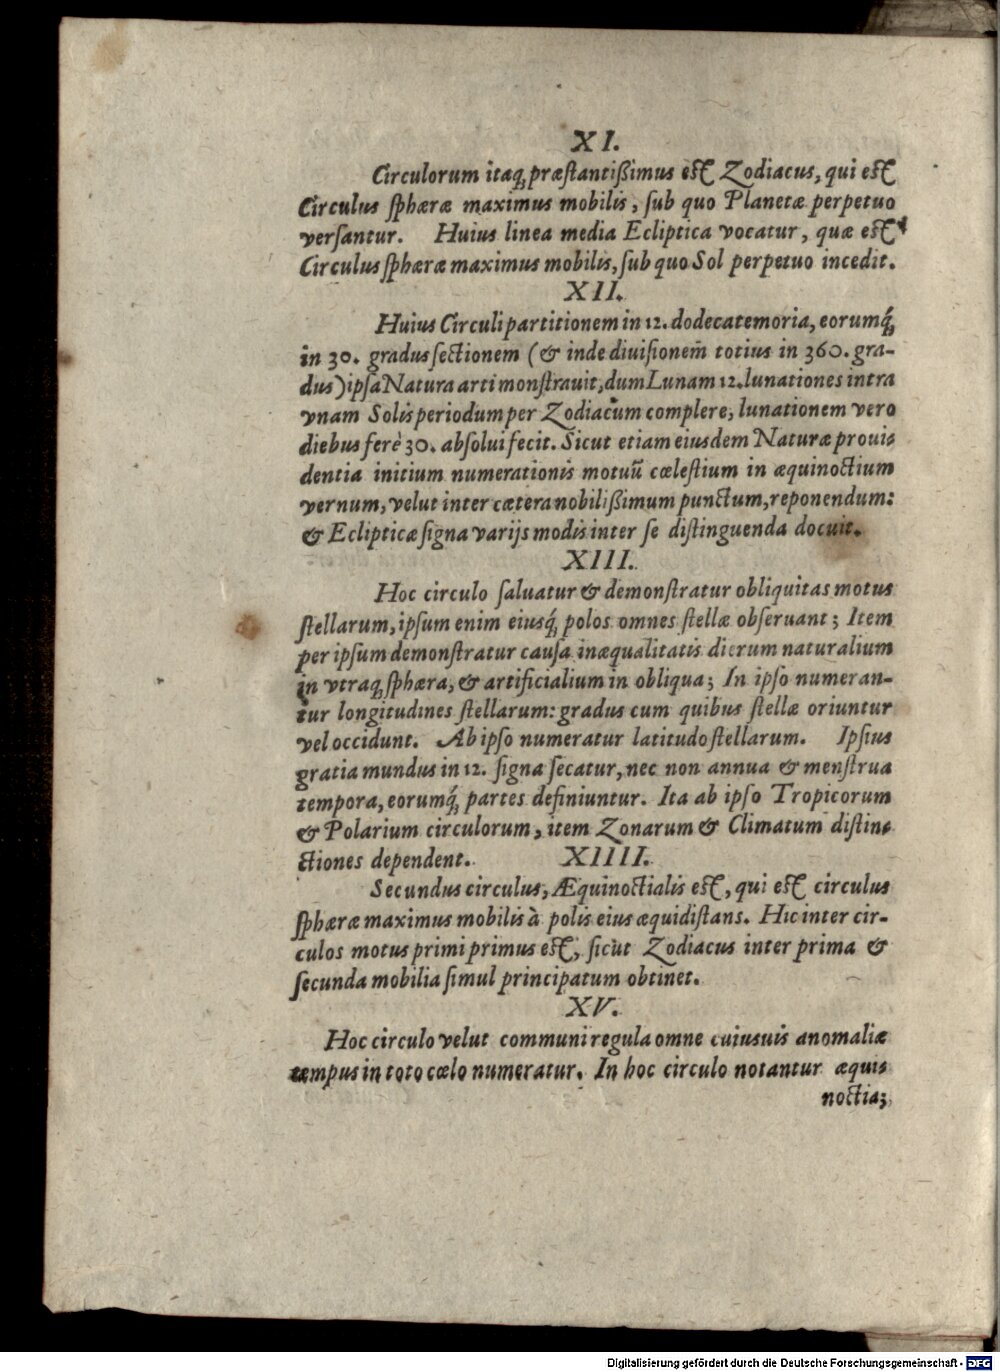 XI.
Circulorum itaq́; præstantißimus est Zodiacus, qui est
Circulus sphæræ maximus mobilis, sub quo Planetæ perpetuo
versantur. Huius linea media Ecliptica vocatur, quæ est
Circulus sphæræ maximus mobilis, sub quo Sol perpetuo incedit.
XII.
Huius Circuli partitionem in 12. dodecatemoria, eorumq́;
in 30. gradus sectionem (& inde diuisionem̃ totius in 360. gra-
dus) ipsa Natura arti monstrauit, dum Lunam 12. lunationes intra
vnam Solis periodum per Zodiacum complere, lunationem vero
diebus ferè 30. absolui fecit. Sicut etiam eiusdem Naturæ prouis
dentia initium numerationis motuũ cœlestium in æquinoctium
vernum, velut inter cætera nobilißimum punctum, reponendum:
& Eclipticæ signa varijs modis inter se distinguenda docuit.
XIII.
Hoc circulo saluatur & demonstratur obliquitas motus
stellarum, ipsum enim eiusq́; polos omnes stellæ obseruant; Item
per ipsum demonstratur causa inæqualitatis dierum naturalium
in vtraq; sphæra, & artificialium in obliqua; In ipso numeran-
tur longitudines stellarum: gradus cum quibus stellæ oriuntur
vel occidunt. Ab ipso numeratur latitudo stellarum. Ipsius
gratia mundus in 12. signa secatur, nec non annua & menstrua
tempora, eorumq́; partes definiuntur. Ita ab ipso Tropicorum
& Polarium circulorum, item Zonarum & Climatum distins
ctiones dependent.
XIIII.
Secundus circulus, Æquinoctialis est, qui est circulus
sphæræ maximus mobilis à polis eius æquidistans. Hic inter cir-
culos motus primi primus est, sicut Zodiacus inter prima &
secunda mobilia simul principatum obtinet.
XV.
Hoc circulo velut communi regula omne cuiusuis anomaliæ
tempus in toto cœlo numeratur. In hoc circulo notantur æquis
noctia;
Digitalisierung gefördert durch die Deutsche Forschungsgemeinschaft - DFG